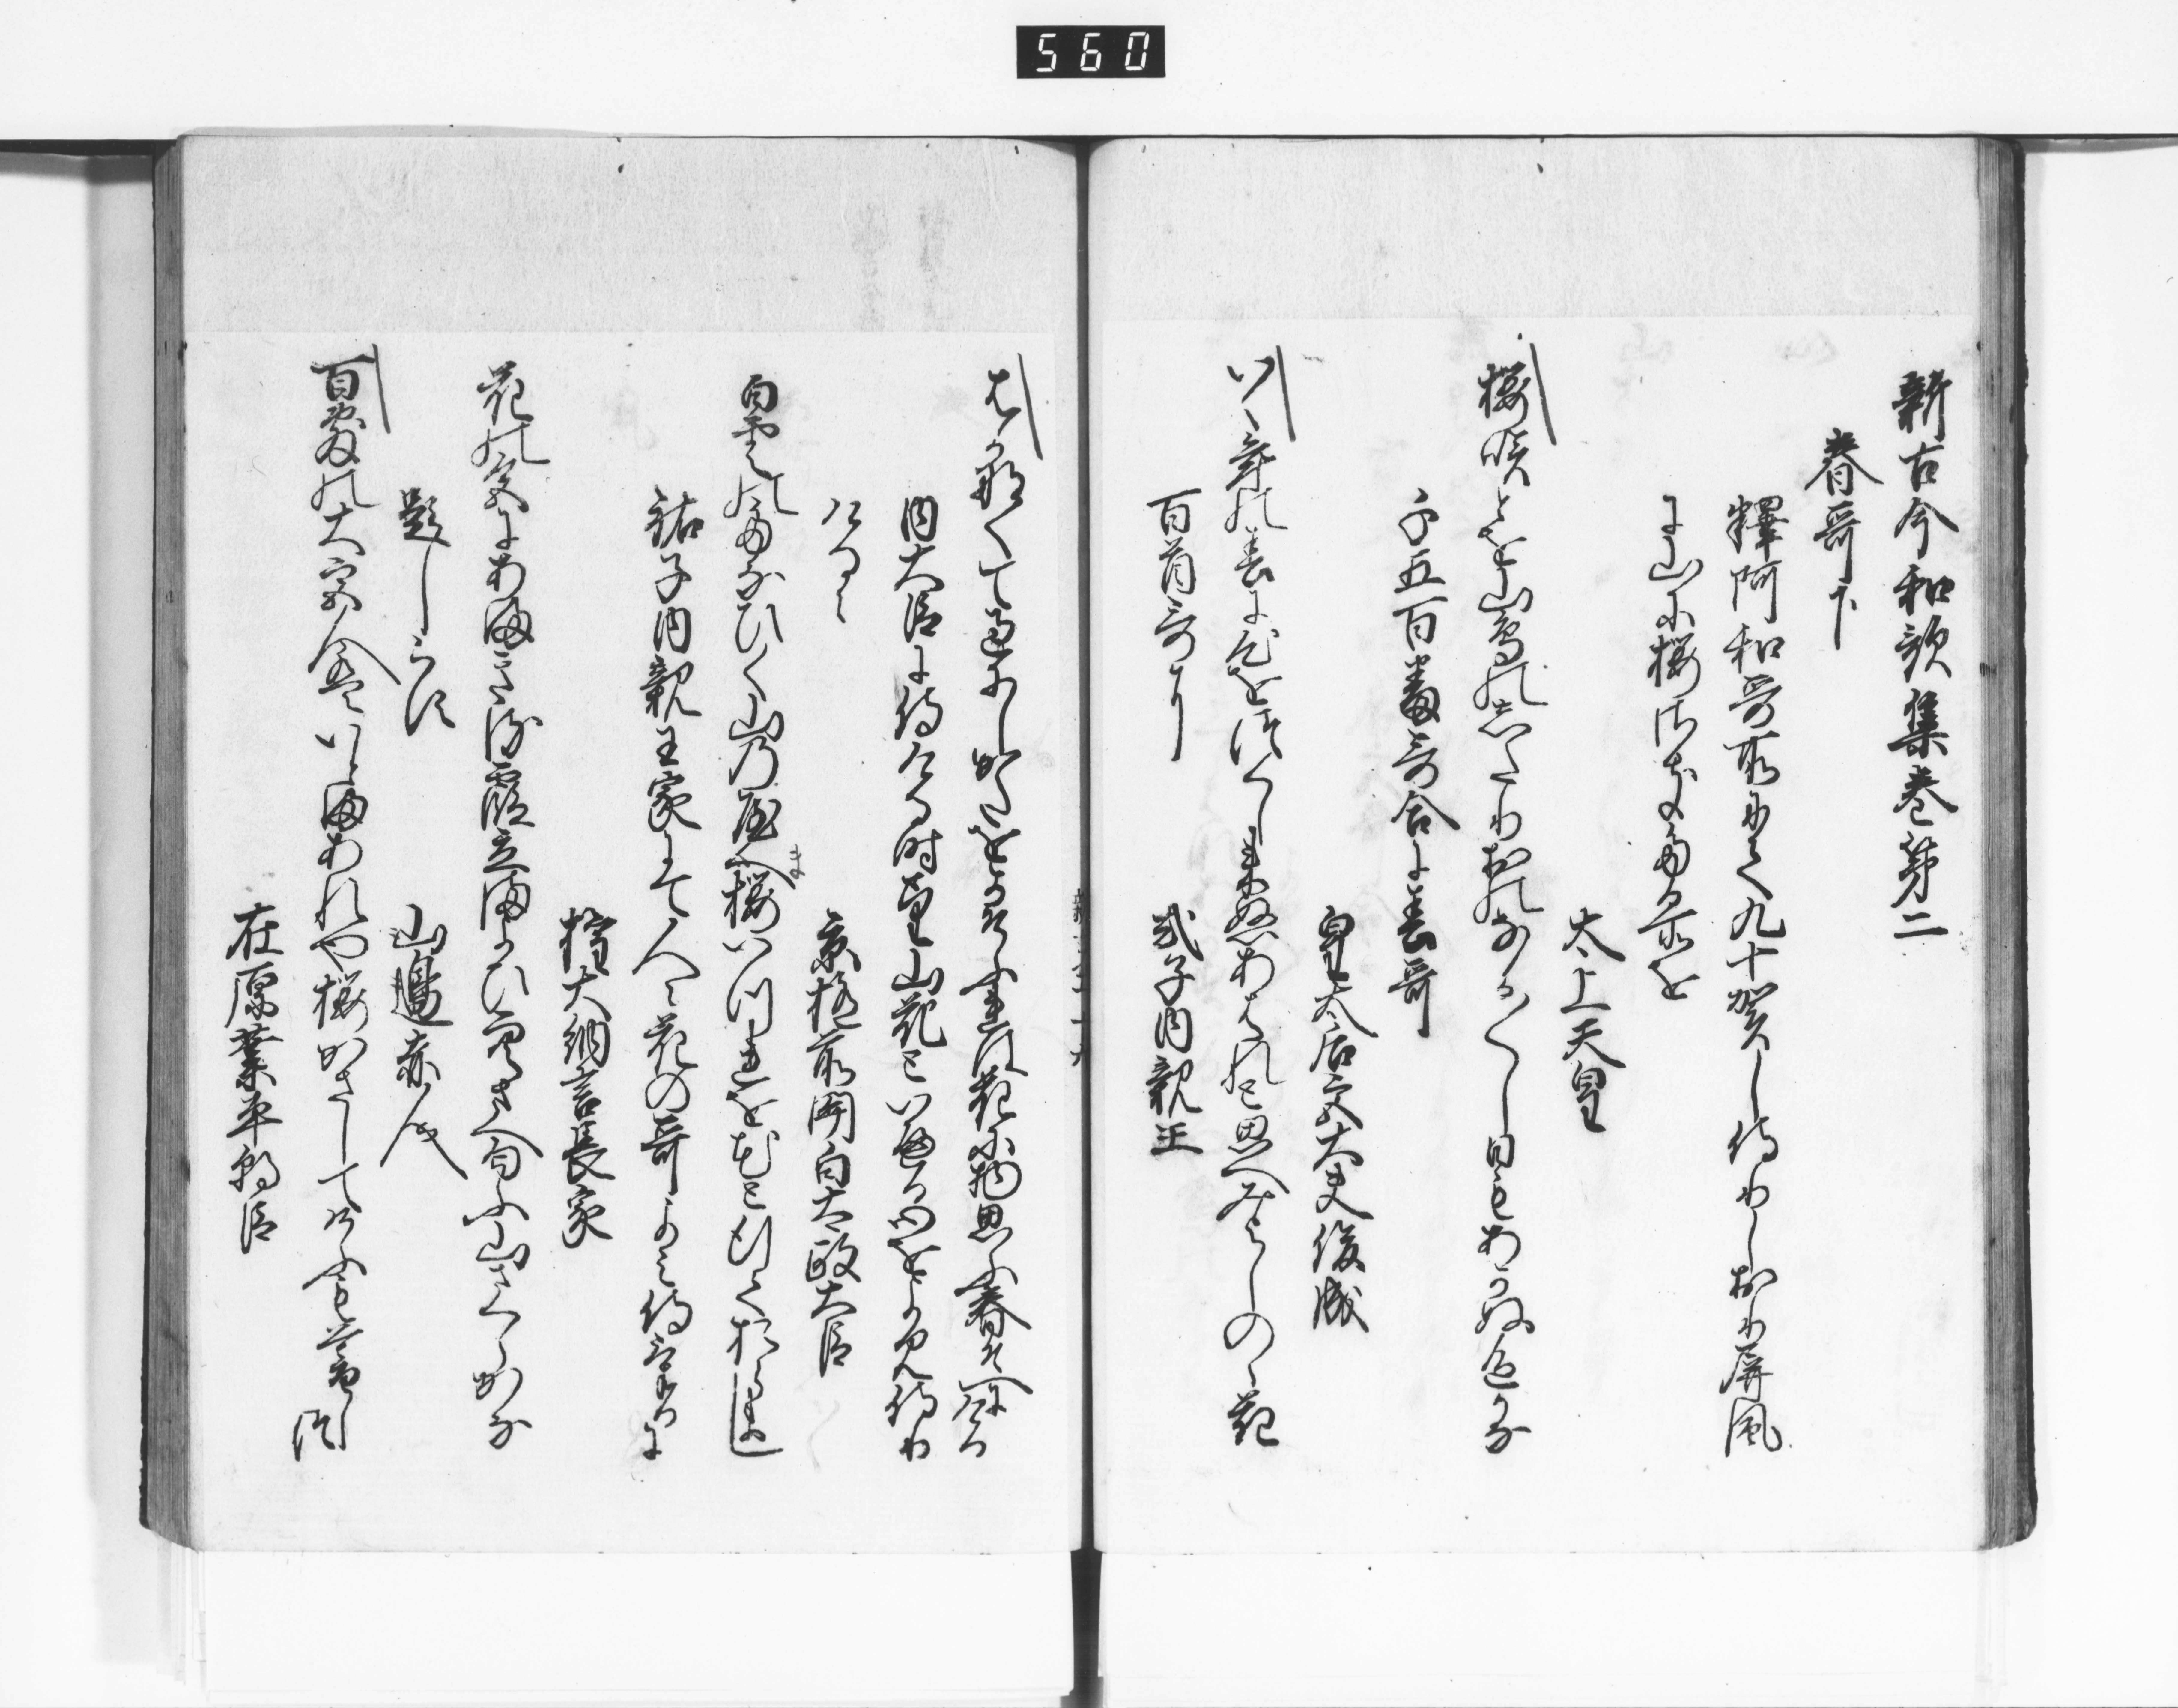 560
新古今和歌集巻第二
春哥下
釋阿和哥所にて九十賀し侍りしおり屏風
に山に桜さきたる所を
太上天皇
桜咲とを山鳥のしたりおのなか〱し日もあかぬ色かな
千五百番哥合に春哥
皇太后宮大夫俊成
いく年の春に心をつくしきぬあはれと思へみよしのゝ花
百首哥に
式子内親王
はかなくて過にしかたをかそふれは花に物思ふ春そへにける
内大臣に侍ける時望山花といへる心をよみ侍り
ける
京極前関白太政大臣
白雲のたなひく山の八重桜いつれを花と行ておらまし
祐子内親王家にて人々花の哥よみ侍けるに
権大納言長家
花の色にあまきる霞立まよひ空さへ匂ふ山さくらかな
題しらす
山邊赤人
百敷の大宮人はいとまあれや桜かさしてけふも暮しつ
在原業平朝臣